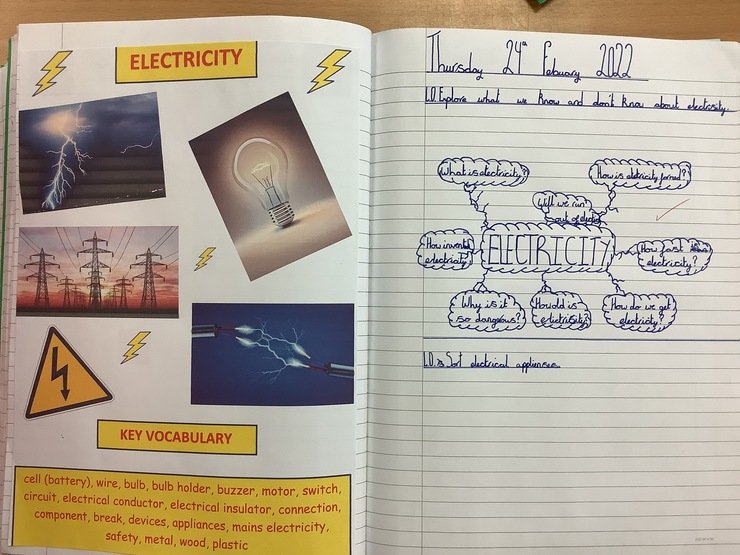 ELECTRICITY
KEY VOCABULARY
cell (battery), wire, bulb, bulb holder, buzzer, motor, switch,
circuit, electrical conductor, electrical insulator, connection,
component, break, devices, appliances, mains electricity,
safety, metal, wood, plastic
Thursday 24th Febuary 2022
L.O. Explore what we know and don't know about electrisity.
What is electricity?
How is eletricity formed?
Will we run
out of
How invented
electricity
ELECTRICITY
How fast is
electricity?
Why is it
so dangerous?
How old is
How do we get
electricity?
L.O. Sort electrical appliences